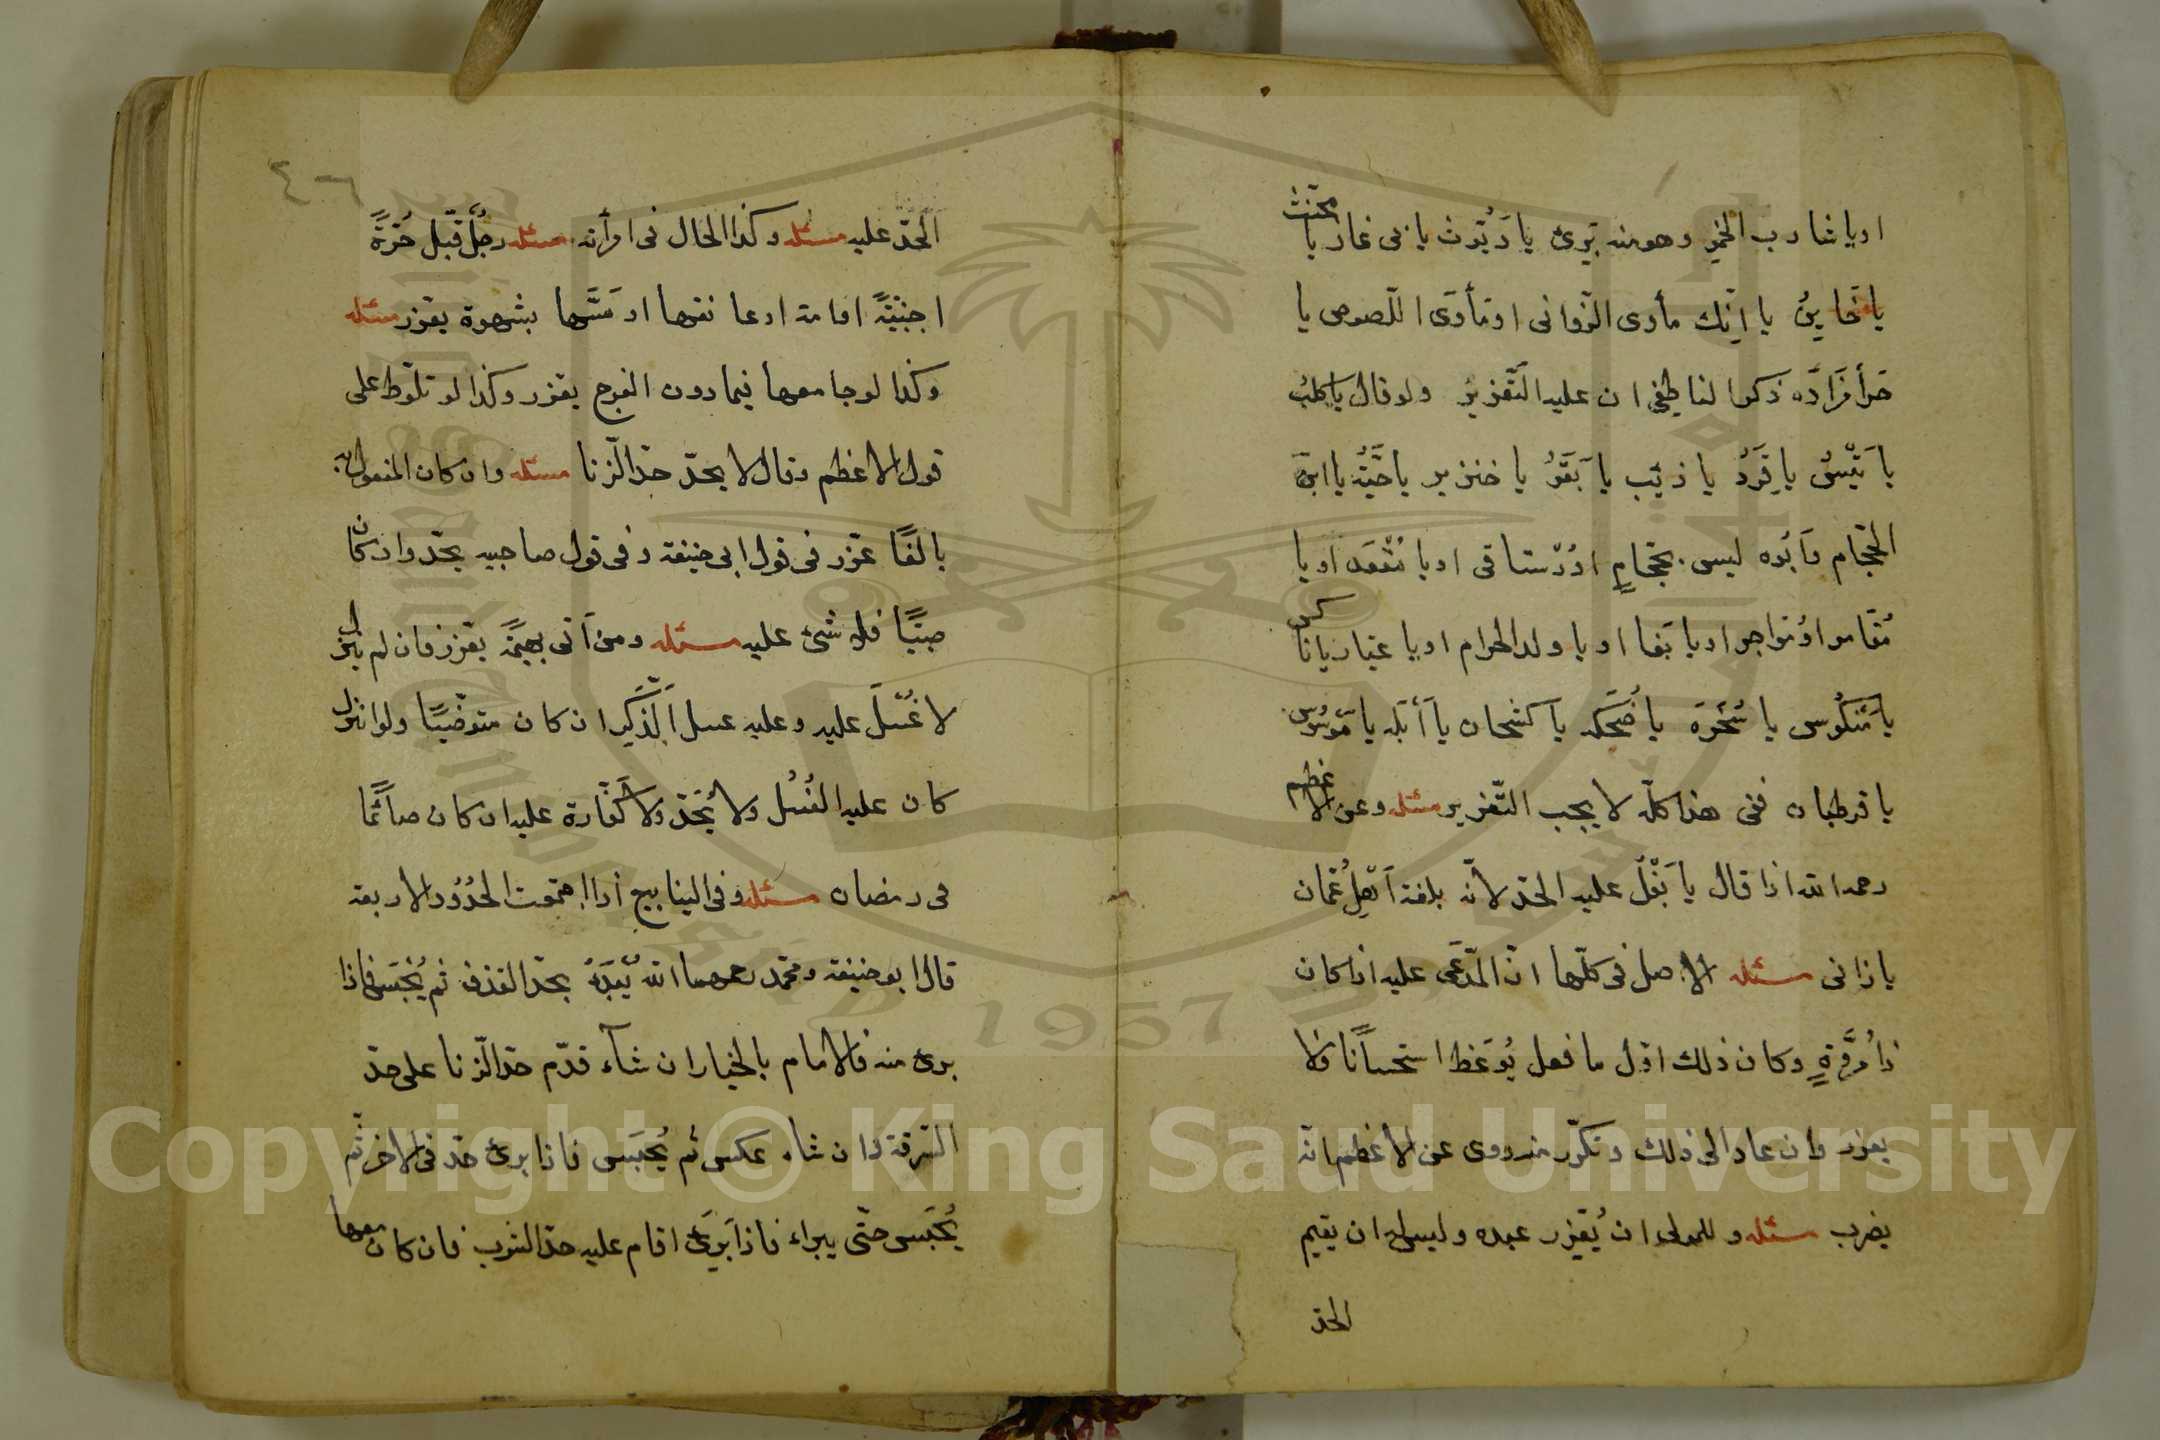 او يا شارب الخمر وهو منه بَرِئ يا دَيُّوث يا بى نماز يا مخنث
يا خَاينُ يا انّك مأوى الزّوانى او مَأوَى اللّصوص يا
حَرأمزَادَه ذكره الناطفى ان عليه التَّعْزيرَ ولو قال يا كلبُ
يا تَيْسُ يا قِرَدُ يا ذئب يا بَقَرُ يا خنزير يا حَيَّةُ يا ابنَ
الحجّام وَابُوه ليس بحجّامٍ او رُسْتاقى او يا مُقْعَد او يا
مُقامر او مُواجر او يا بَغا او يا ولد الحرام او يا عيّار يا ناكس
يا مَنكُوس يا سُخْرَة يا ضُحَكه يا كشحان يا أَبْلَه يا مُوَسْوَس
يا قرطبان ففى هذا كلّه لا يجب التّعزير مسئله وعن الاعظم
رحمه الله اذا قال يا بَغْلُ عليه الحدّ لانّه بلغة اَهْلِ عُمَان
يا زانى مسئله الاصل فى كلّها انّ المدّعَى عليه اذا كان
ذا مُرُوَّةٍ وكان ذلك اوّل ما فعل يُوعَظ استحسانًا ولا
يعزر وان عاد الى ذلك وتكرّر منه روى عن الاعظم انّه
يضرب مسئله وللمولى ان يُعَزِّر عبده وليس له ان يقيم
الحدّ
٤٠٦
الحَدّ عليه مسئله وكذا الحال فى امرأته مسئله رجُلٌ قبّل حُرَّةً
اجنبيّةً او امة او عانقها او مَسَّها بشهوة يعزر مسئله
وكذا لو جامعها فيما دون الفرج يعزر وكذا لو تلّوط على
قول الاعظم وقالا يحدّ حدّ الزنا مسئله وان كان المفعول به
بالغًا عزّر فى قول ابى حنيفة وفى قول صاحبيه يحدّ وان كان
صبيًّا فلا شئ عليه مسئله ومن اَتى بهيمَةً يعزّر فان لم ينزل
لا غُسْلَ عليه وعليه غسل الذَّكَر ان كان متوضّيًا ولو انزل
كان عليه الغُسُل ولا يُحَدّ ولا كَفّارة عليه ان كان صَآئمًا
فى رمضان مسئله وفى الينابيع اذا اجتمعت الحُدُود الاربعة
قال ابو حنيفة ومحمّد رحمهما الله يُبْدَءُ بحدّ القذف ثم يُحْبَس فاذا
برئ منه فالامام بالخيار ان شآء قدّم حدّ الزنا على حدّ
السّرقة وان شاء عكس ثم يُحْبَس فاذا برئ حدّ فى الاخر ثُمّ
يُحْبَس حتّى يبراء فاذا بَرِئَ اقام عليه حدّ الشرب فان كان معها
Copyright © King Saud University
1957